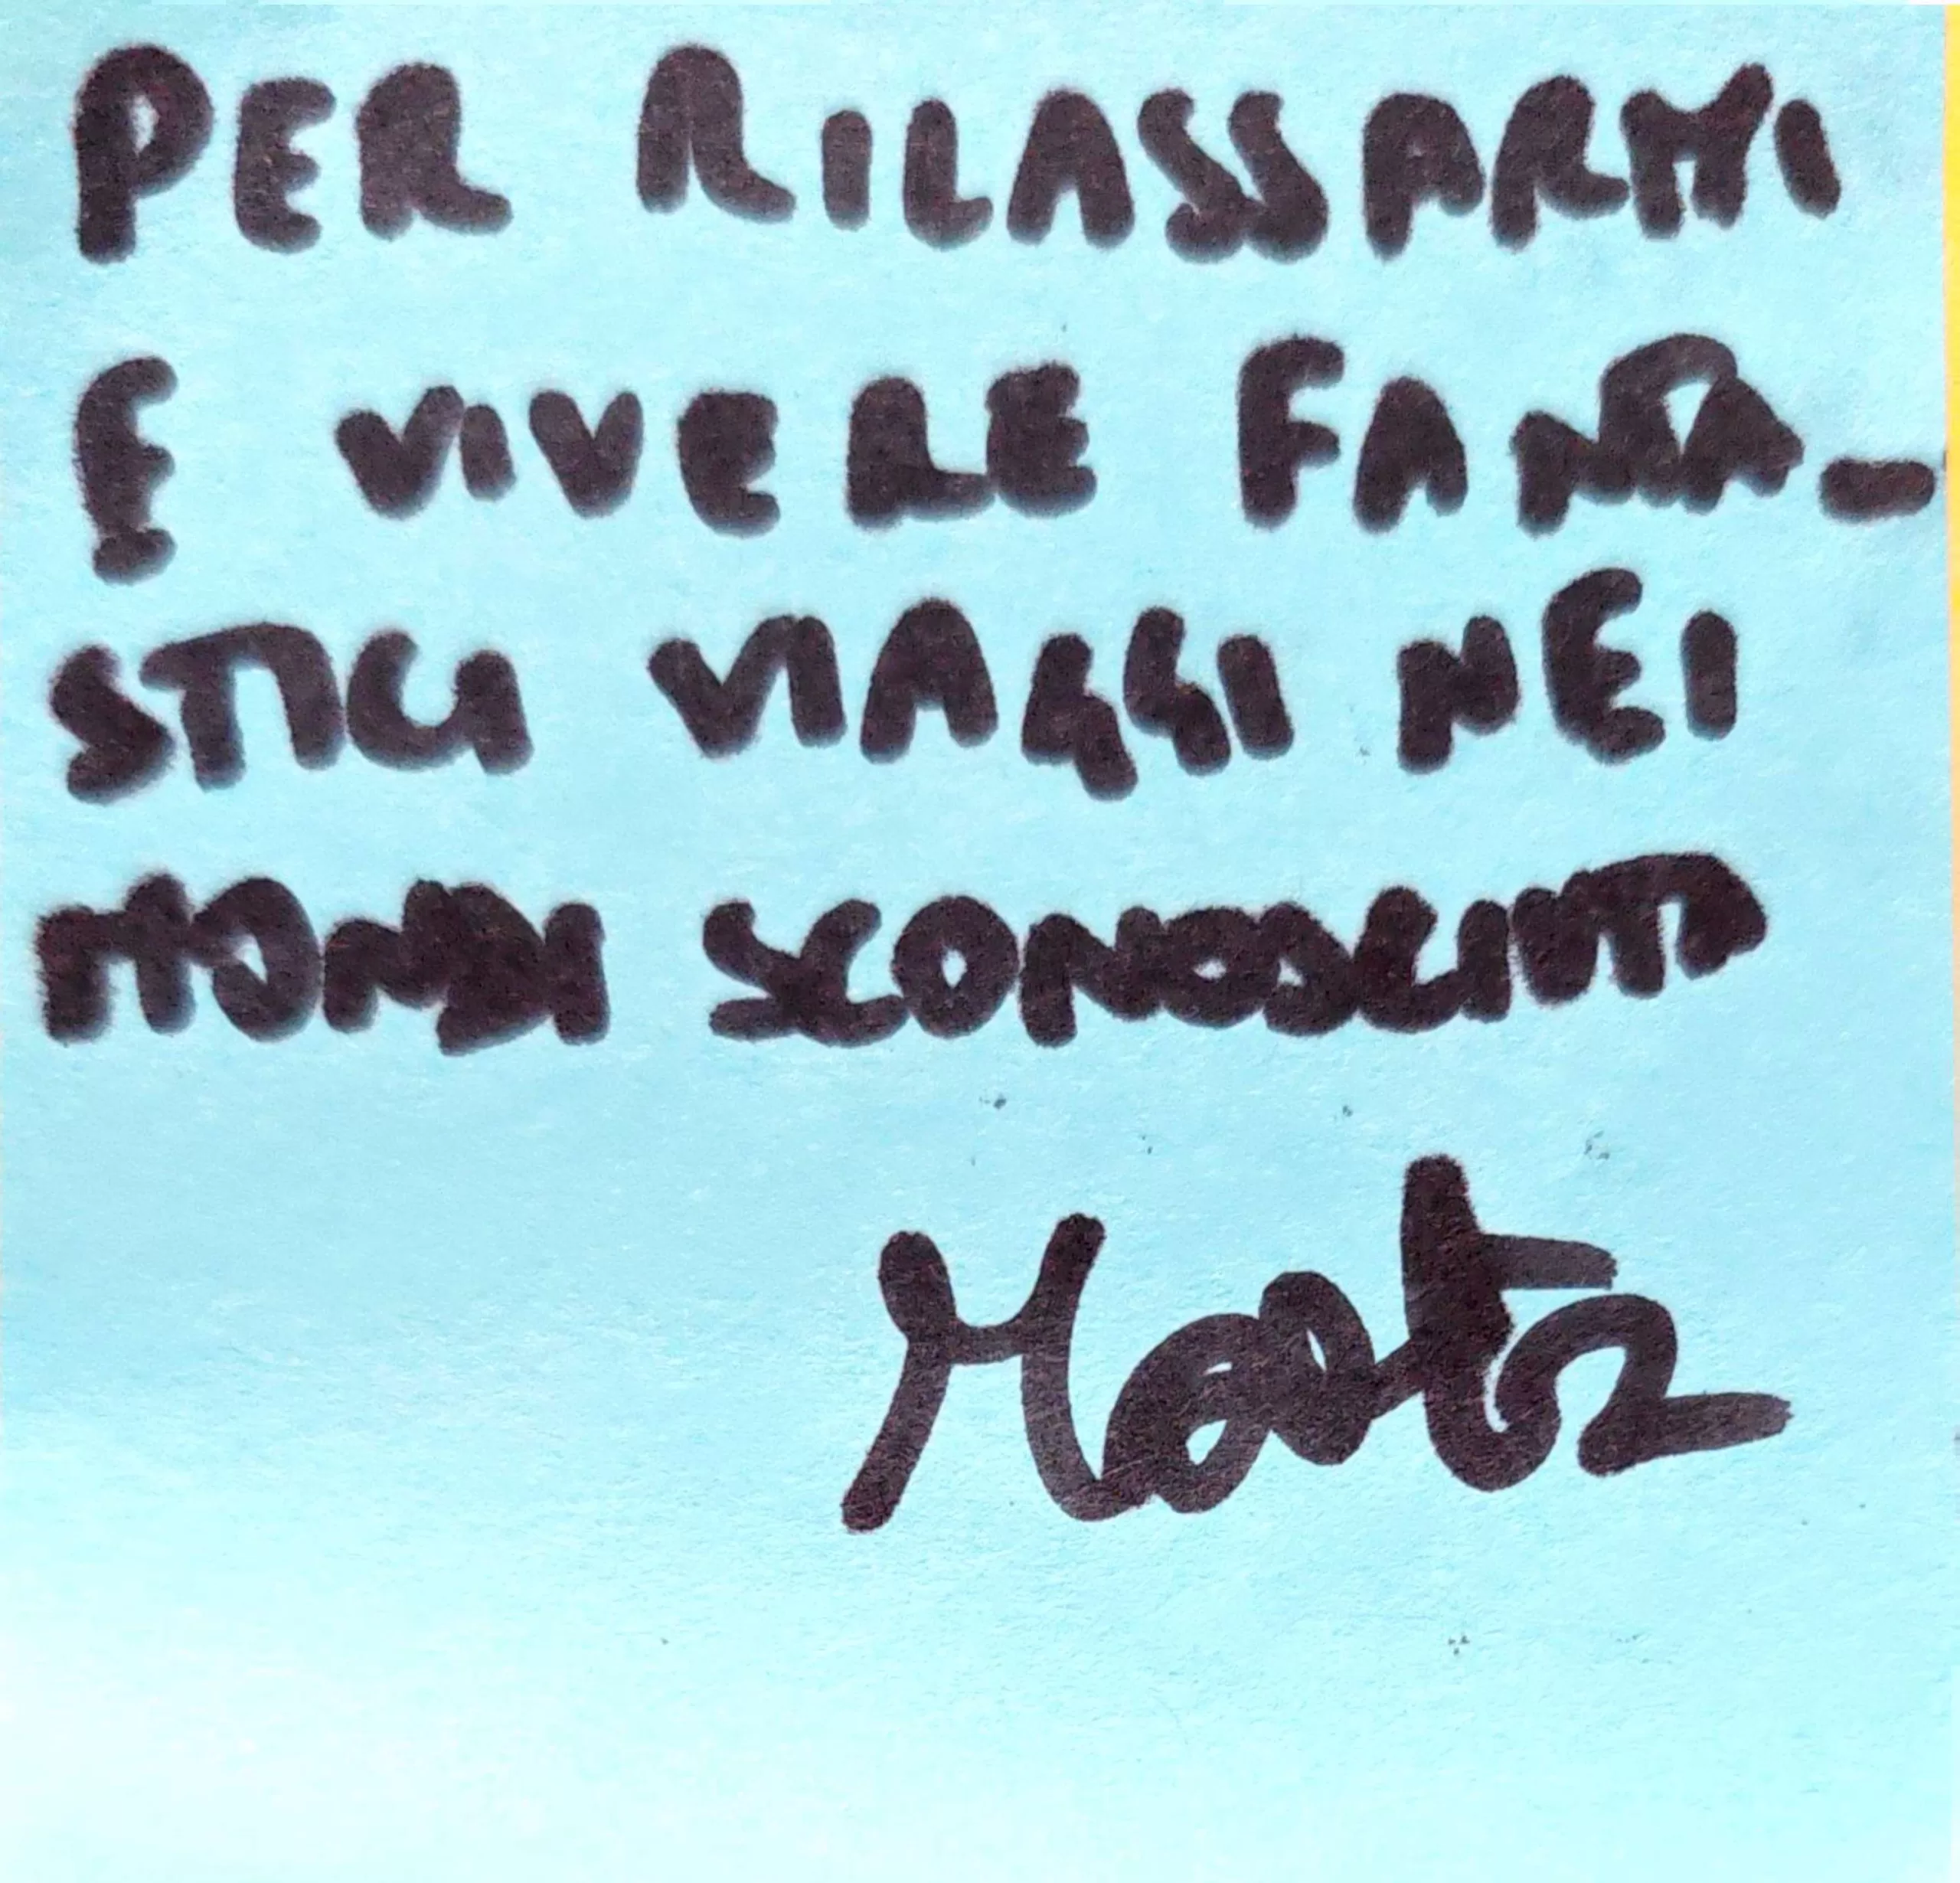 PER RILASSARMI
E VIVERE FANTA-
STICI VIAGGI NEI
MONDI SCONOSCIUTI